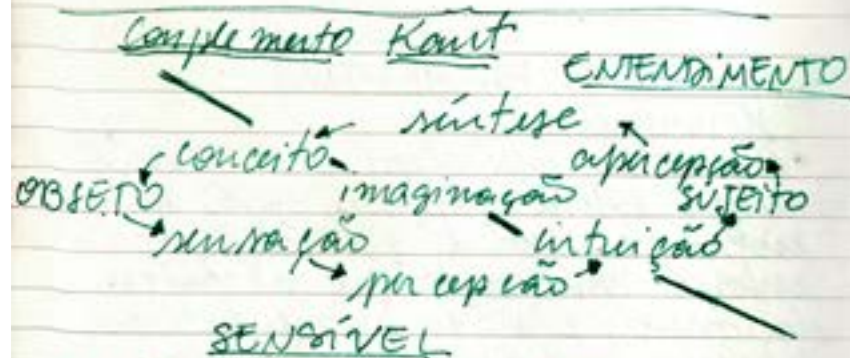 Complemento Kant
ENTENDIMENTO
síntese
conceito apercepção
OBJETO imaginação SUJEITO
sensação intuição
percepção
SENSÍVEL